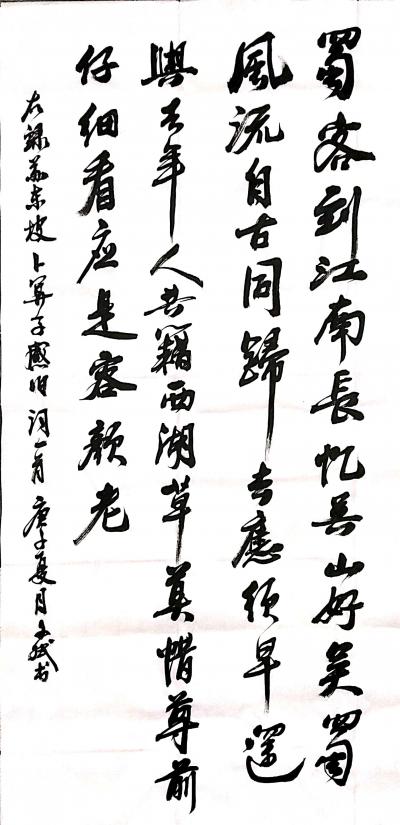 蜀客到江南長忆吴山好吴蜀
風流自古同歸去應须早還
與去年人共籍西湖草莫惜尊前
仔细看应是容颜老
右録苏东坡卜算子感旧词一首 庚子夏月 书